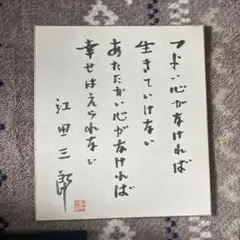 つよい心がなければ
生きていけない
あたたかい心がなければ
幸せはえられない
江田三郎